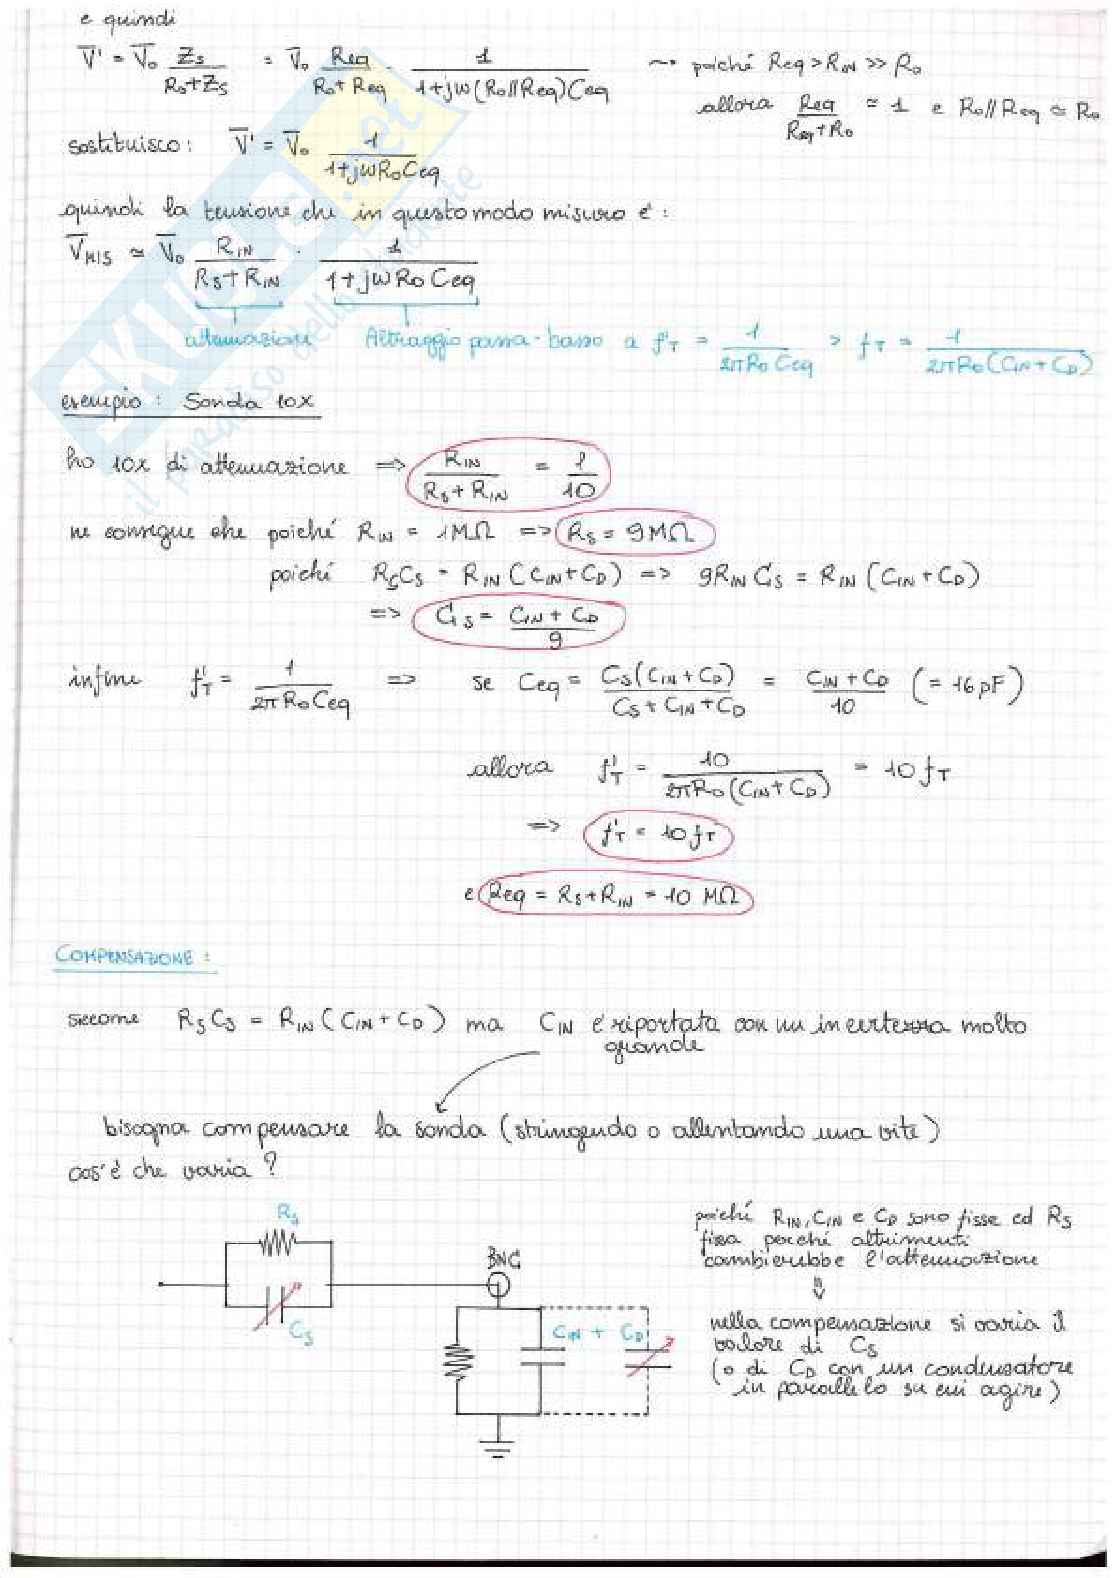 e quindi
V̅' = V̅₀ Zs/(R₀+Zs) = V̅₀ Req/(R₀+Req) · 1/(1+jω(R₀//Req)Ceq) ~> poiché Req > R_IN >> R₀
allora Req/(Req+R₀) ≃ 1 e R₀//Req ≃ R₀
sostituisco: V̅' = V̅₀ 1/(1+jωR₀Ceq)
quindi la tensione che in questo modo misuro è:
V̅_MIS ≃ V̅₀ R_IN/(R_S+R_IN) · 1/(1+jωR₀Ceq)
attenuazione filtraggio passa-basso a f'_T = 1/(2πR₀Ceq) > f_T = 1/(2πR₀(C_IN+C_D))
esempio: Sonda 10x
ho 10x di attenuazione => R_IN/(R_S+R_IN) = 1/10
ne consegue che poiché R_IN = 1MΩ => R_S = 9MΩ
poiché R_S C_S = R_IN (C_IN+C_D) => 9R_IN C_S = R_IN (C_IN+C_D)
=> C_S = (C_IN + C_D)/9
infine f'_T = 1/(2πR₀Ceq) => se Ceq = C_S(C_IN+C_D)/(C_S+C_IN+C_D) = (C_IN+C_D)/10 (= 16 pF)
allora f'_T = 10/(2πR₀(C_IN+C_D)) = 10 f_T
=> f'_T = 10 f_T
e Req = R_S+R_IN = 10 MΩ
COMPENSAZIONE:
siccome R_S C_S = R_IN (C_IN + C_D) ma C_IN è riportata con un incertezza molto
grande
bisogna compensare la sonda (stringendo o allentando una vite)
cos'è che varia?
R_S
C_S
BNC
C_IN + C_D
poiché R_IN, C_IN e C_D sono fisse ed R_S
fissa perché altrimenti
cambierebbe l'attenuazione
⇓
nella compensazione si varia il
valore di C_S
(o di C_D con un condensatore
in parallelo su cui agire)
SKUOLA.net
il paradiso dello studente